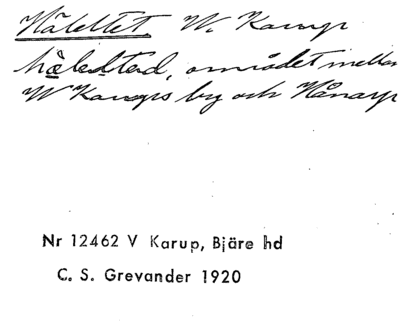 Hälettet W. Karup
häledted, området mellan
W Karups by och Hånarp
Nr 12462 V Karup, Bjäre hd
C. S. Grevander 1920